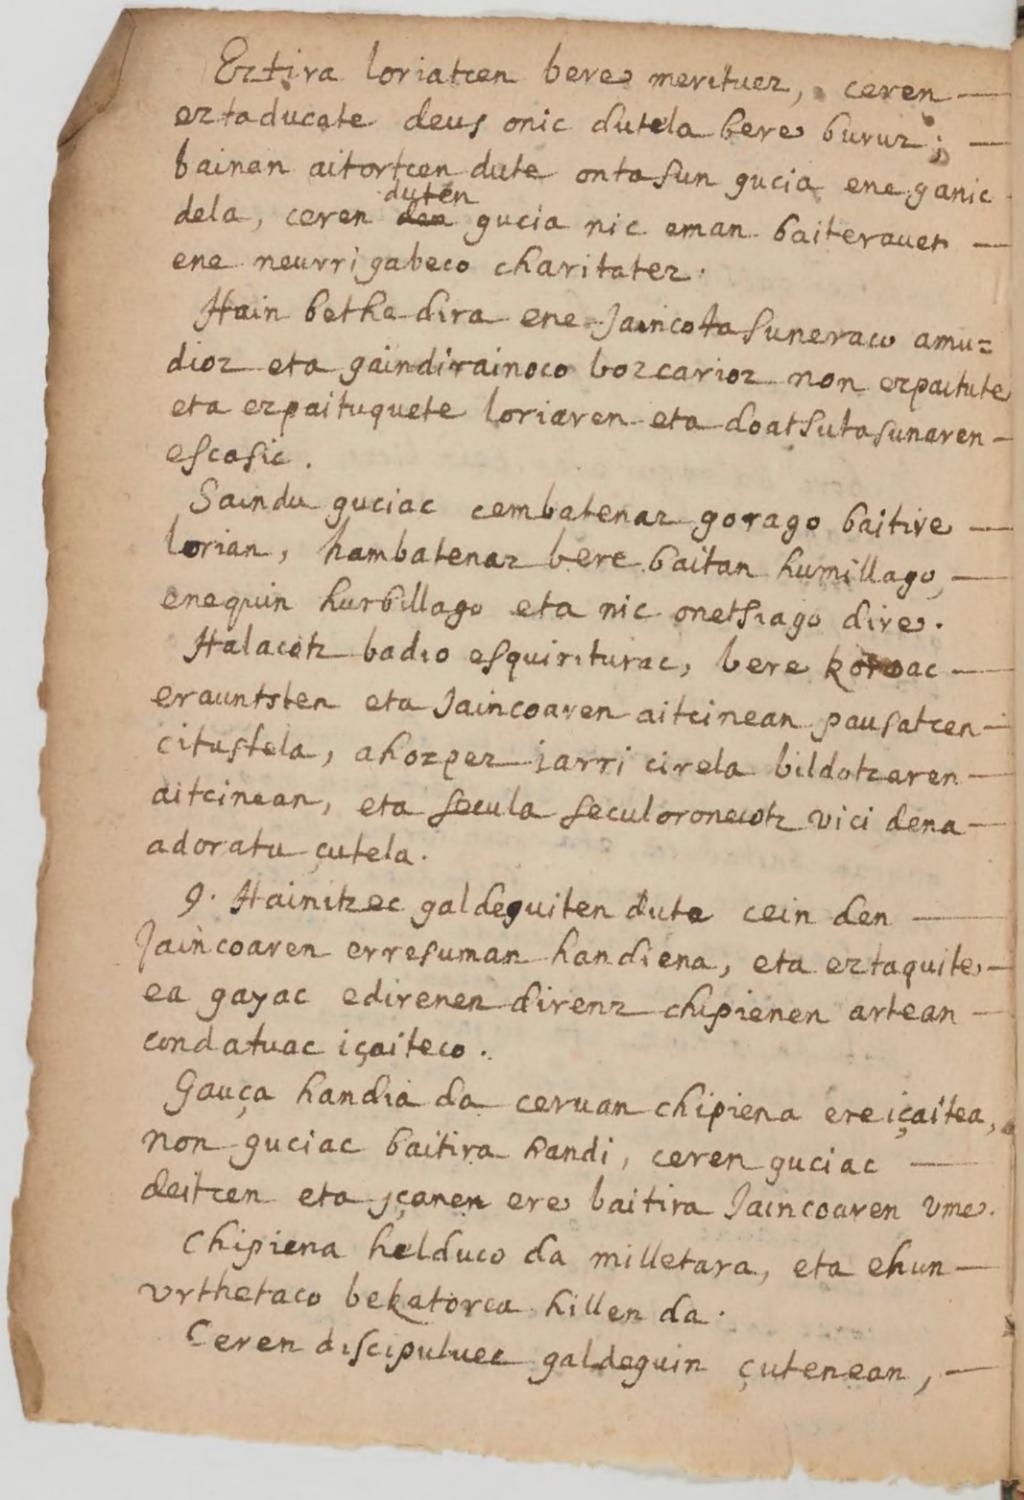 Eztira loriatcen bere merituez, ceren —
eztaducate deus onic dutela bere buruz; —
bainan aitortcen dute ontasun gucia ene ganic
dela, ceren duten gucia nic eman baiterauet —
ene neurri gabeco charitatez.
Hain bethe dira ene Jaincotasuneraco amu=
dioz eta gaindirainoco bozcarioz non ezpaitute
eta ezpaituquete loriaren eta doatsutasunaren —
escasic.
Saindu guciac cembatenaz gorago baitire —
lorian, hambatenaz bere baitan humillago, —
enequin hurbillago eta nic onetsiago dire.
Halacotz badio esquiriturac, bere koroac —
erauntsten eta Jaincoaren aitcinean pausatcen —
citustela, ahozpez jarri cirela bildotzaren —
aitcinean, eta secula seculoronecotz vici dena —
adoratu çutela.
9. Hainitzec galdeguiten dute cein den —
Jaincoaren erresuman handiena, eta eztaquite —
ea gayac edirenen direnz chipienen artean —
condatuac içaiteco.
Gauça handia da ceruan chipiena ere içaitea,
non guciac baitira handi, ceren guciac —
deitcen eta jçanen ere baitira Jaincoaren vme.
Chipiena helduco da milletara, eta ehun —
vrthetaco bekatorea hillen da.
Ceren discipuluec galdeguin çutenean, —